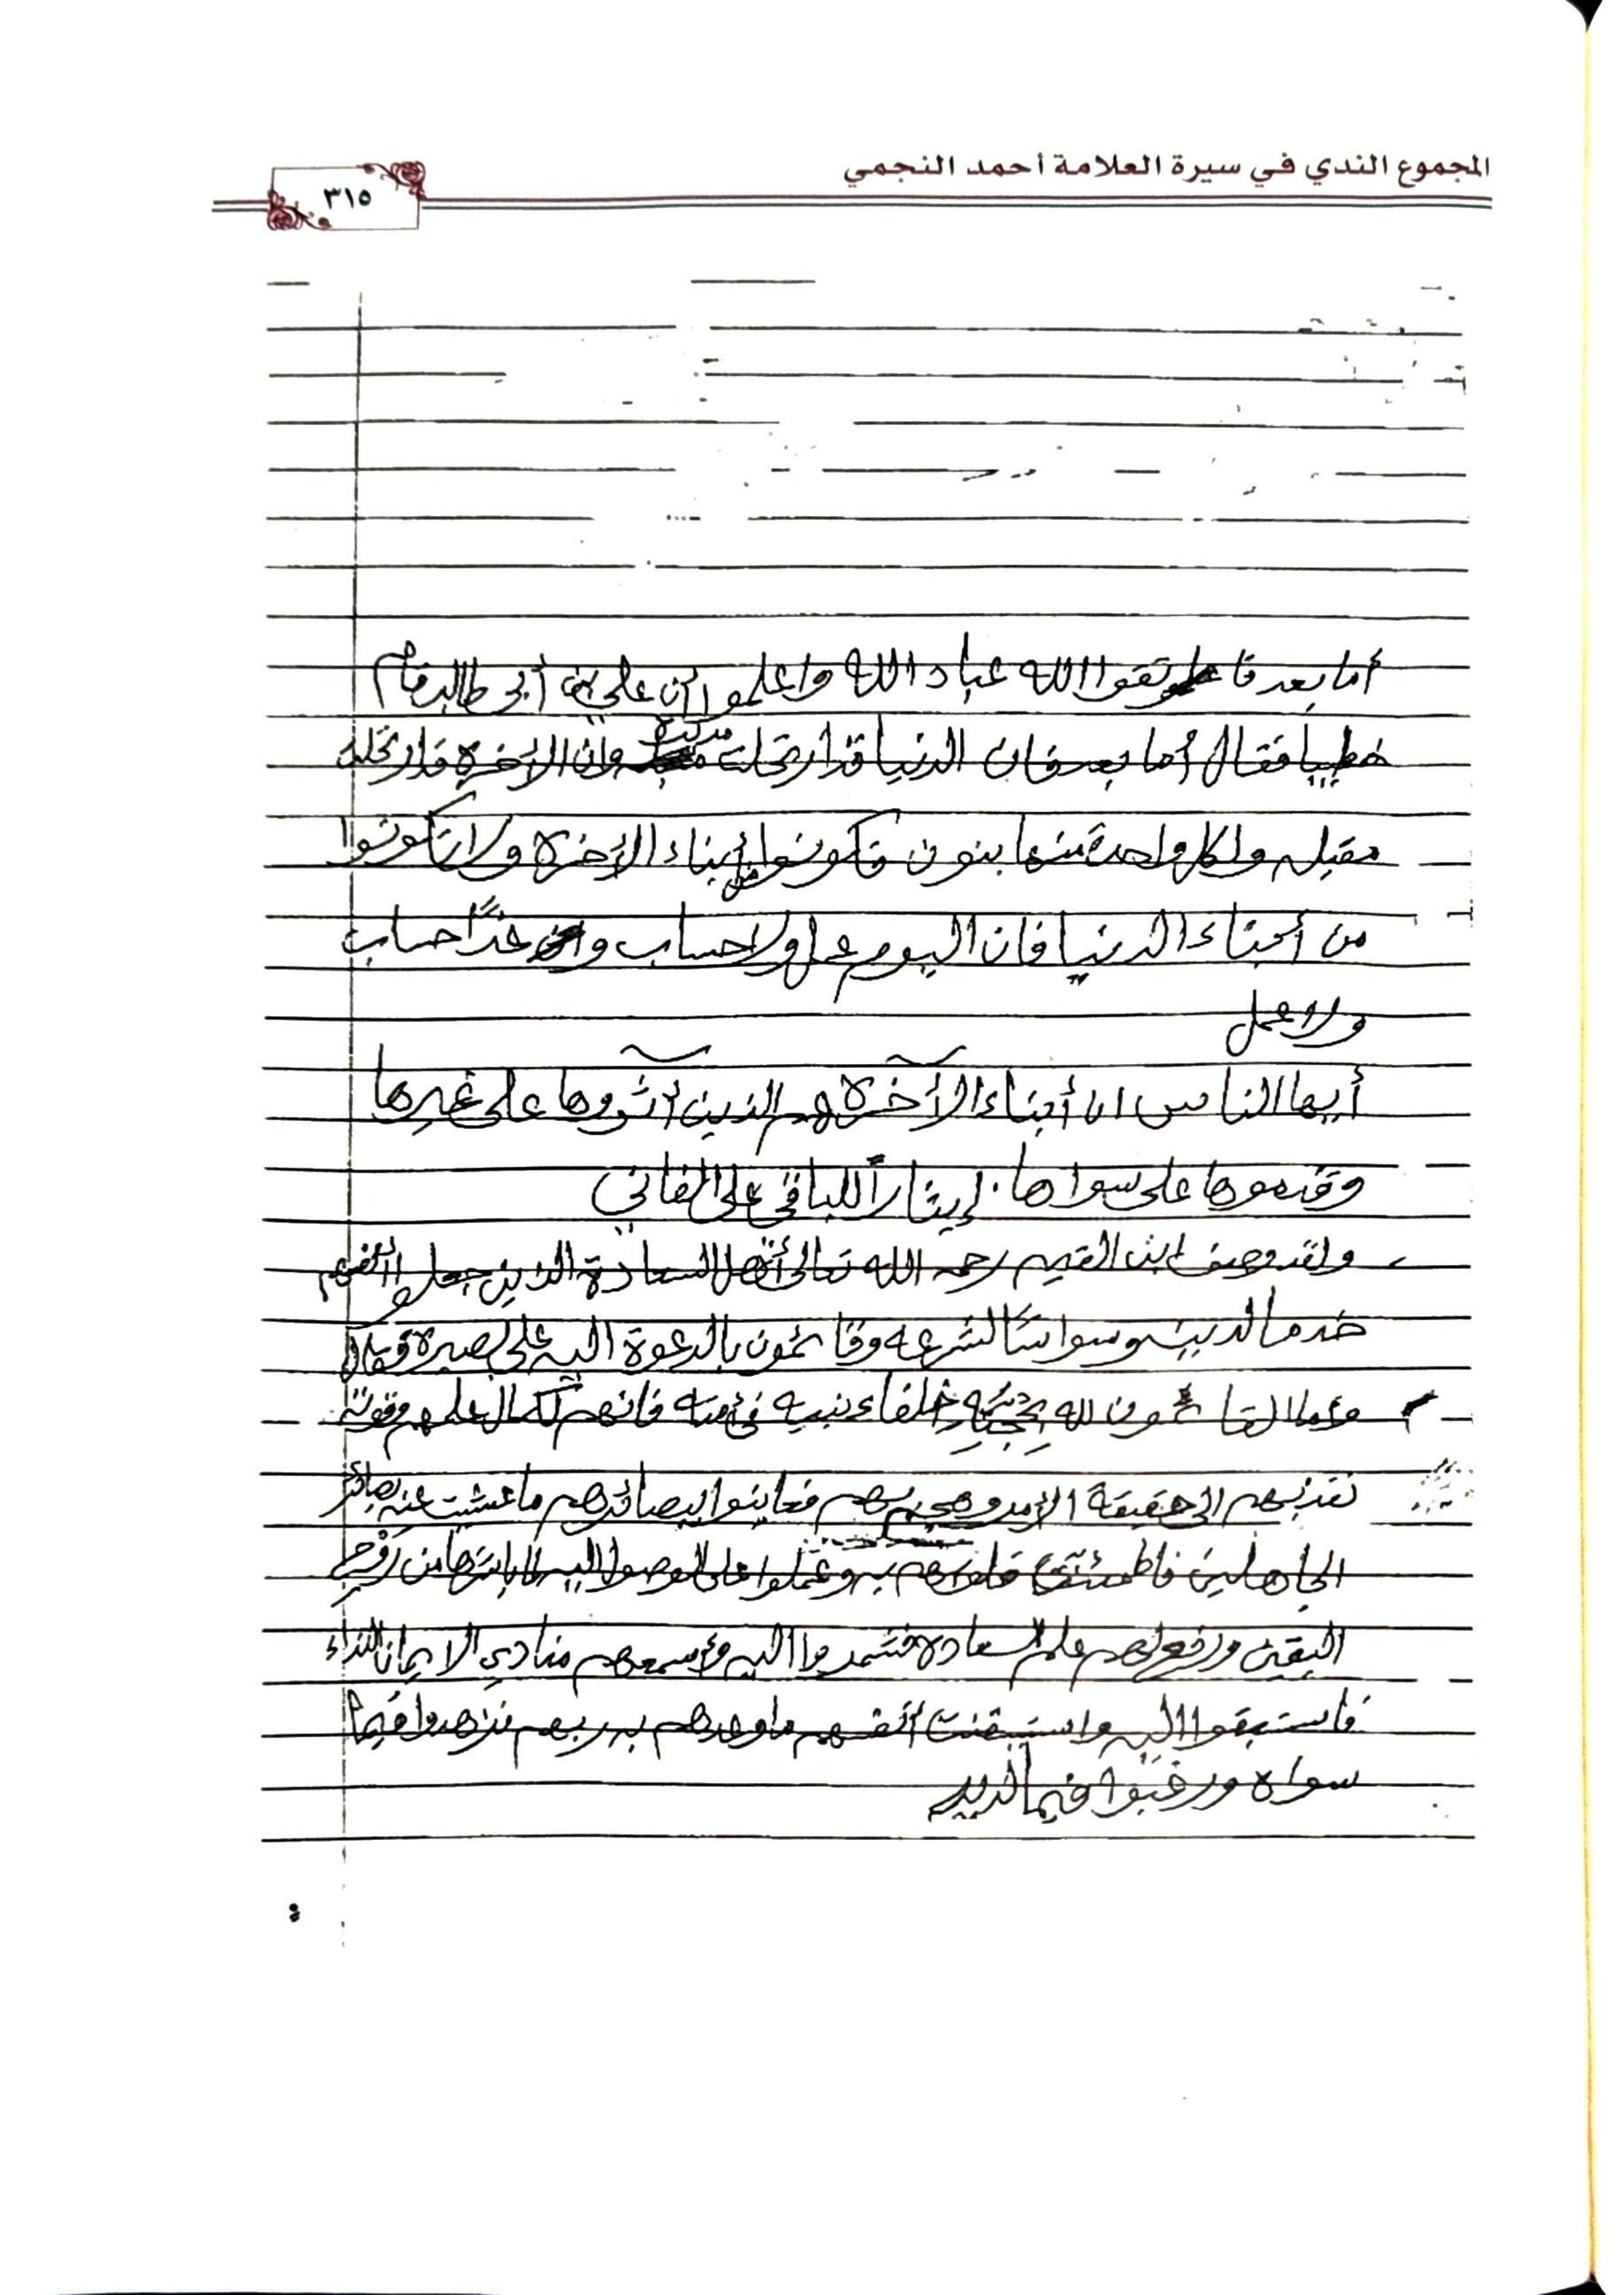 المجموع الندي في سيرة العلامة أحمد النجمي
٣١٥
أما بعد فاتقوا الله عباد الله واعلموا أن علي بن أبي طالب قام
خطيبا فقال أما بعد فان الدنيا قد ارتحلت مدبرة وان الآخرة قد ارتحلت
مقبله ولكل واحدة منها بنون فكونوا من أبناء الآخرة ولا تكونوا
من أبناء الدنيا فان اليوم عمل ولا حساب وغداً حساب
ولا عمل
أيها الناس ان أبناء الآخرة هم الذين آثروها على غيرها
وقدموها على سواها . إيثاراً للباقي على الفاني
ولقد وصف ابن القيم رحمه الله تعالى أهل السعادة الذين جعلوا أنفسهم
خدما لدينه وسواسًا لشرعه وقائمون بالدعوة اليه على بصيرة فقال
وأما القائمون لله بحججه خلفاء نبيه في أمته فانهم لكمال علمهم وقوته
نفذ بهم الى حقيقة الأمر وهجم بهم فعاينوا ببصائرهم ما عشيت عنه بصائر
الجاهلين فاطمئنت قلوبهم به وعملوا على الوصول اليه لما باشرها من رَوْح
اليقين ورفع لهم علم السعادة فشمروا اليه وأسمعهم منادي الايمان النداء
فاستبقوا اليه واستيقنت أنفسهم ما وعدهم به ربهم فزهدوا فيما
سواه ورغبوا فيما لديه